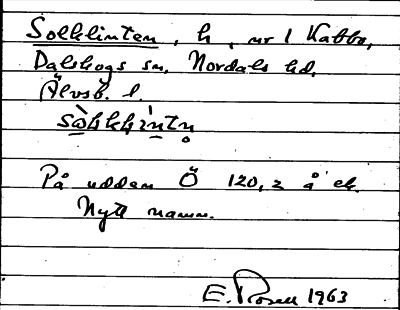 Solklinten, h, nr 1 Kabbo,
Dalskogs sn, Nordals hd,
Älvsb. l.
På udden Ö 120,2 å ek.
Nytt namn.
E. Rosell 1963